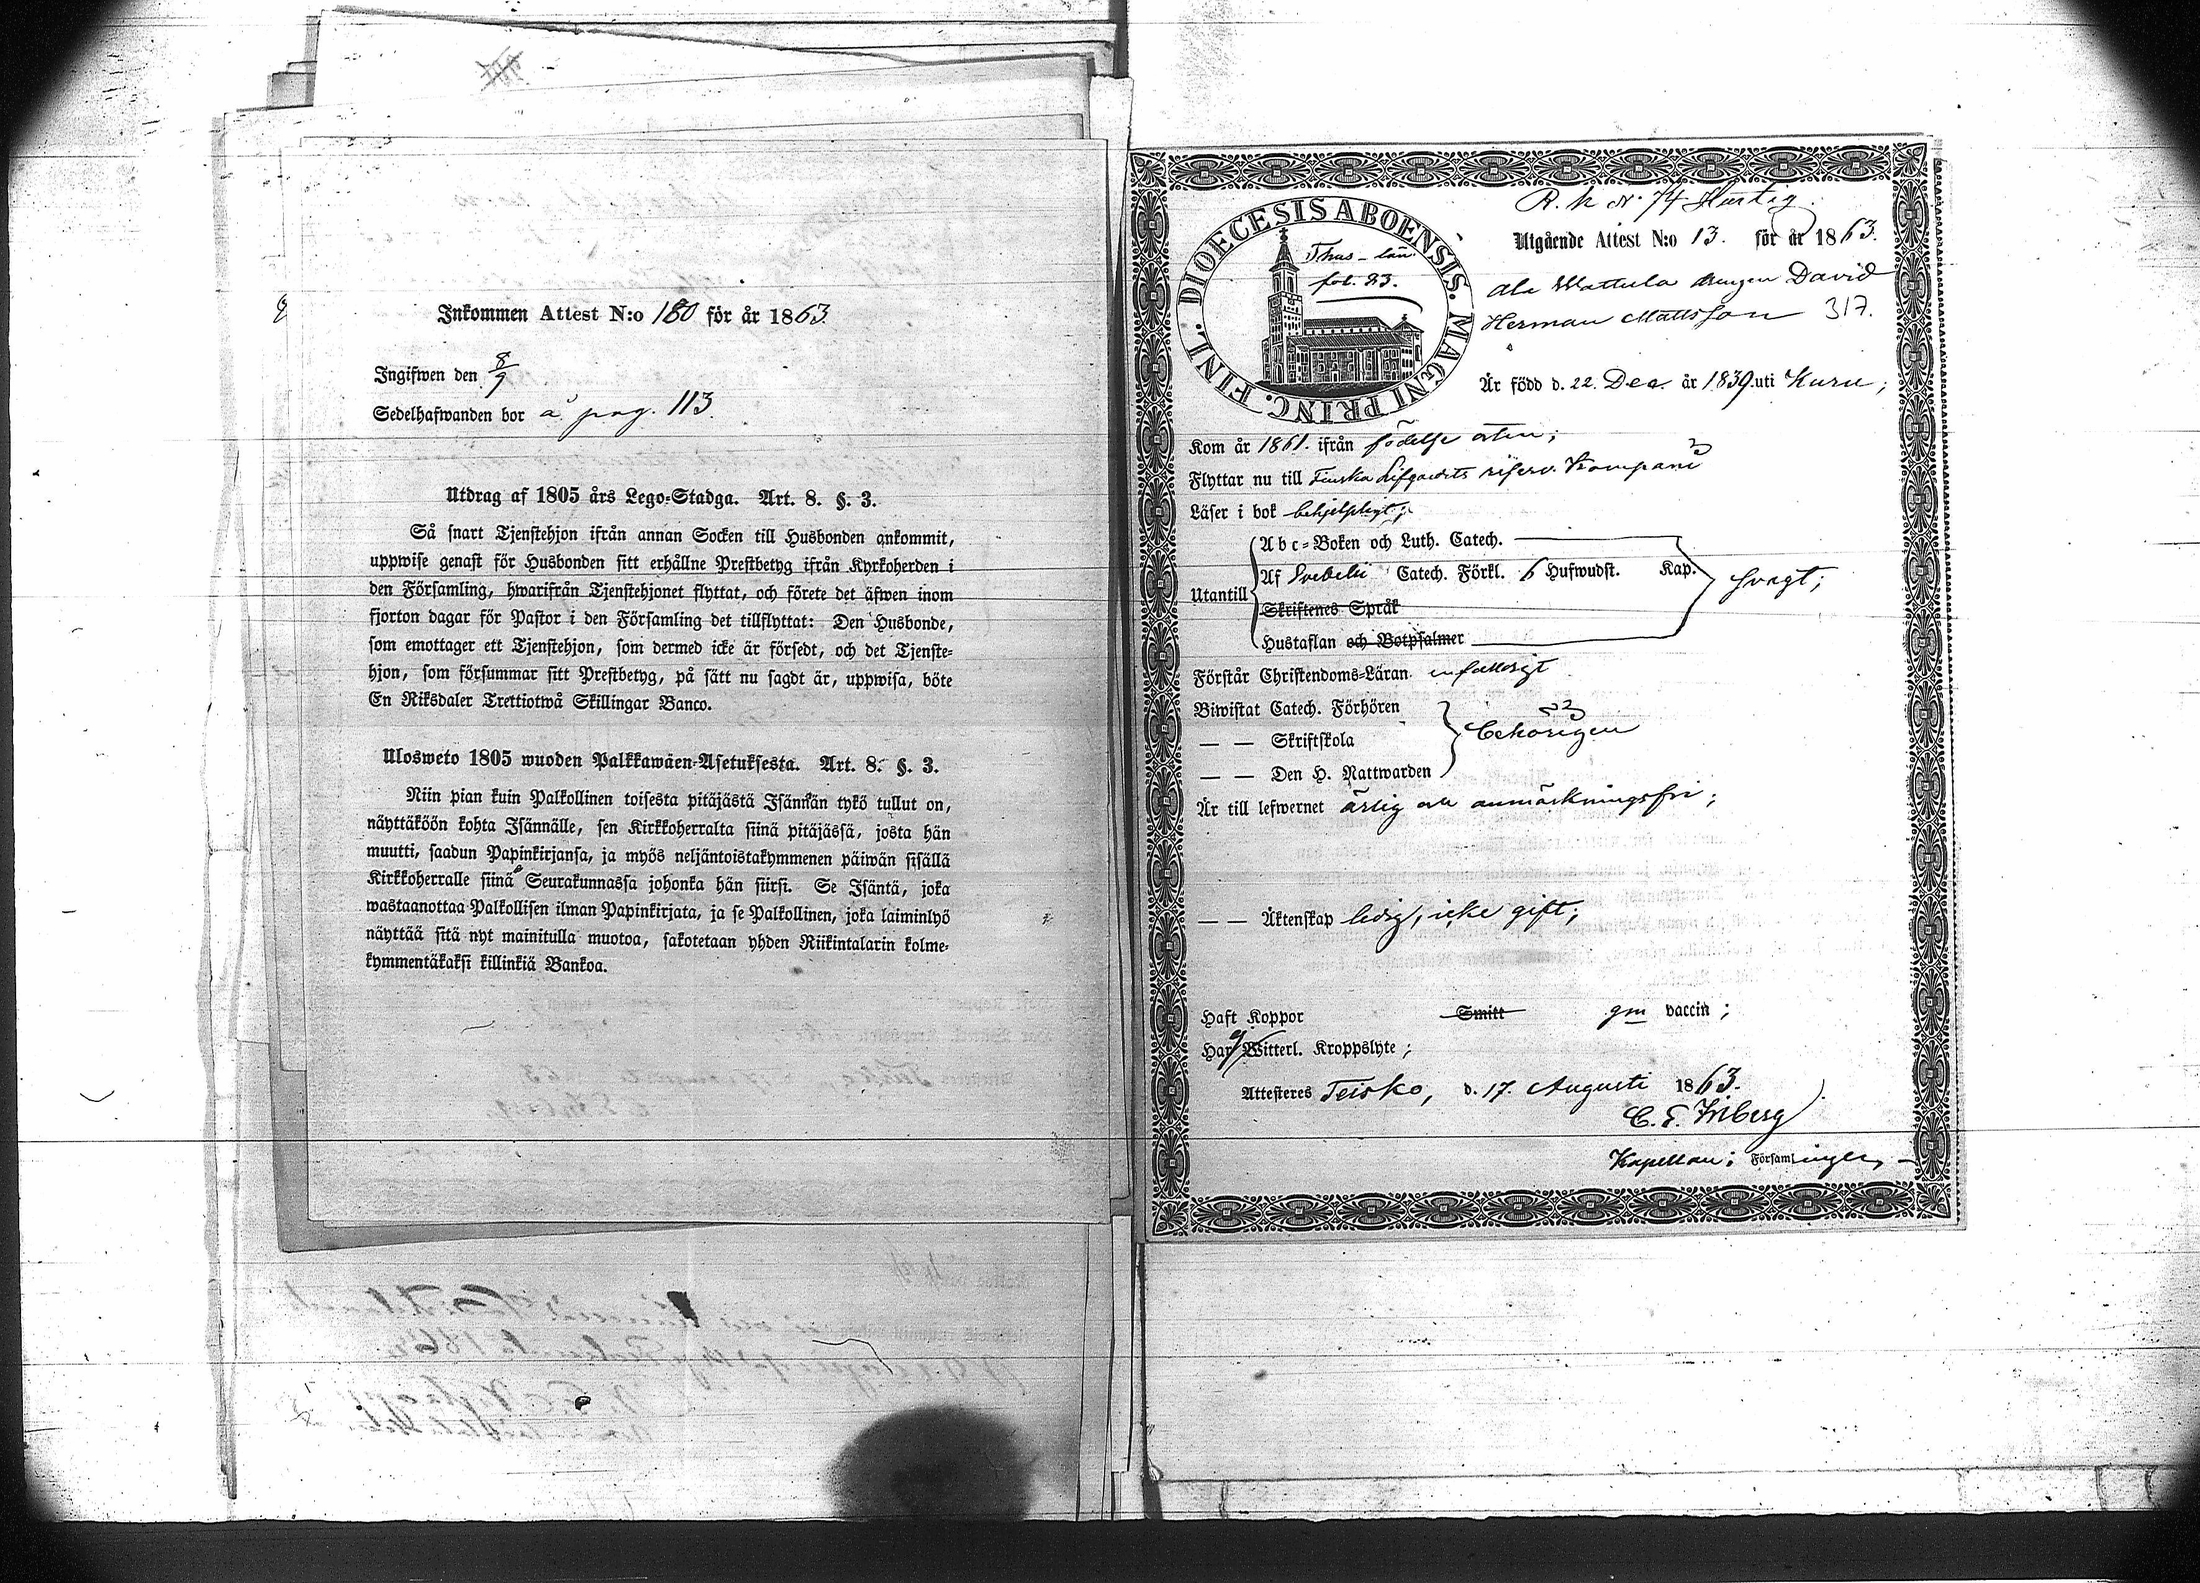 Inkommen Attest N:o 180 för år 1863.
Ingifwen den 8/9
Sedelhafwanden bor å pag. 113
Utdrag af 1805 års Lego-Stadga. Art. 8. §. 3.
Så snart Tjenstehjon ifrån annan Socken till Husbonden ankommit,
uppwise genast för Husbonden sitt erhållne Prestbetyg ifrån Kyrkoherden i
den Församling, hwarifrån Tjenstehjonet flyttat, och förete det äfwen inom
fjorton dagar för Pastor i den Församling det tillflyttat: Den Husbonde,
som emottager ett Tjenstehjon, som dermed icke är försedt, och det Tjenste-
hjon, som försummar sitt Prestbetyg, på sätt nu sagdt är, uppwisa, böte
En Riksdaler Trettiotwå Skillingar Banco.
Ulosweto 1805 wuoden Palkkawäen-Asetuksesta. Art. 8. §. 3.
Niin pian kuin Palkollinen toisesta pitäjästä Isännän tykö tullut on,
näyttäköön kohta Isännälle, sen Kirkkoherralta siinä pitäjässä, josta hän
muutti, saadun Papinkirjansa, ja myös neljäntoistakymmenen päiwän sisällä
Kirkkoherralle siinä Seurakunnassa johonka hän siirsi. Se Isäntä, joka
wastaanottaa Palkollisen ilman Papinkirjata, ja se Palkollinen, joka laiminlyö
näyttää sitä nyt mainitulla muotoa, sakotetaan yhden Riikintalarin kolme-
kymmentäkaksi killinkiä Bankoa.
R. k No 74 Hurtig.
DIOECESIS ABOENSIS. MAGNI PRINC. FINL.
fol. 23.
Utgående Attest N:o 13. för år 1863.
Ala Mattula drengen David
Herman Mattsson 317.
Är född d. 22. Dec. år 1839. uti Kuru;
Kom år 1861. ifrån födelse orten;
Flyttar nu till Finska Lifgardets reserv. Kompani
Läser i bok behjelpligt;
Utantill
Abc-Boken och Luth. Catech.
Af Svebelii Catech. Förkl. 6 Hufwudst. Kap. svagt;
Skriftenes Språk
Hustaflan och Botpsalmer
Förstår Christendoms-Läran enfaldigt
Biwistat Catech. Förhören
— — Skriftskola behörigen
— — Den H. Nattwarden
Är till lefwernet ärlig och anmärkningsfri;
— — Äktenskap ledig, icke gift;
Haft Koppor Smitt gm vaccin;
Har Witterl. Kroppslyte;
Attesteres Teisko, d. 17. Augusti 1863.
C. E. Friberg
Kapellan i Församlingen,